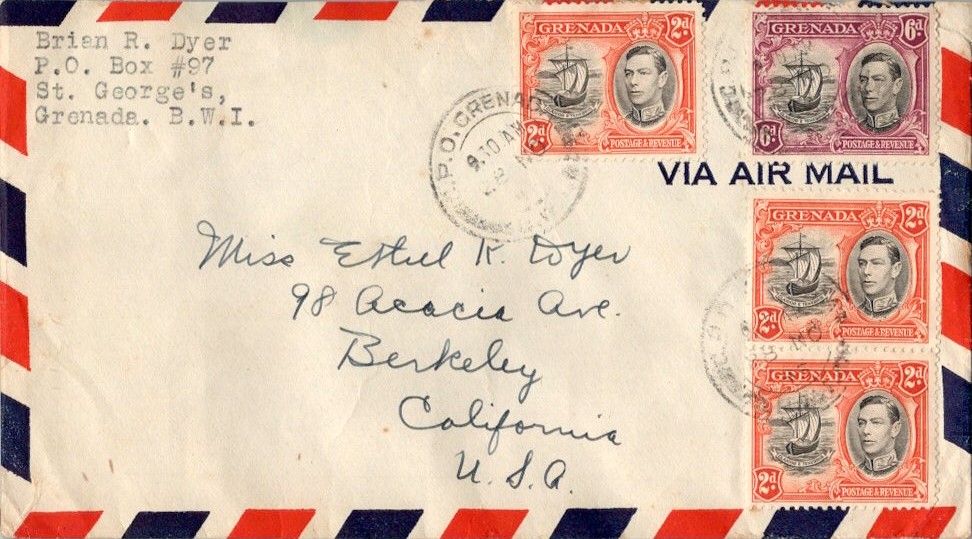 Brian R. Dyer
P.O. Box #97
St. George's,
Grenada. B.W.I.
GRENADA 2d
2d POSTAGE & REVENUE
GRENADA 6d
6d POSTAGE & REVENUE
G.P.O. GRENADA
9.10 AM
VIA AIR MAIL
GRENADA 2d
2d POSTAGE & REVENUE
GRENADA 2d
2d POSTAGE & REVENUE
Miss Ethel K. Dyer
98 Acacia Ave.
Berkeley
California
U.S.A.